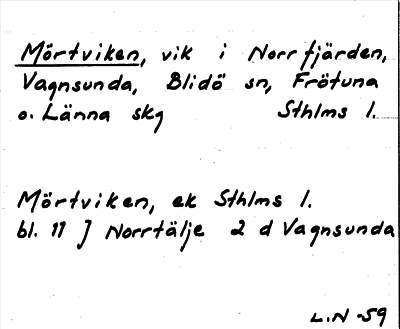 Mörtviken, vik i Norrfjärden,
Vagnsunda, Blidö sn, Frötuna
o. Länna skg Sthlms l.
Mörtviken, ek Sthlms l.
bl. 11 J Norrtälje 2 d Vagnsunda
L.N -59